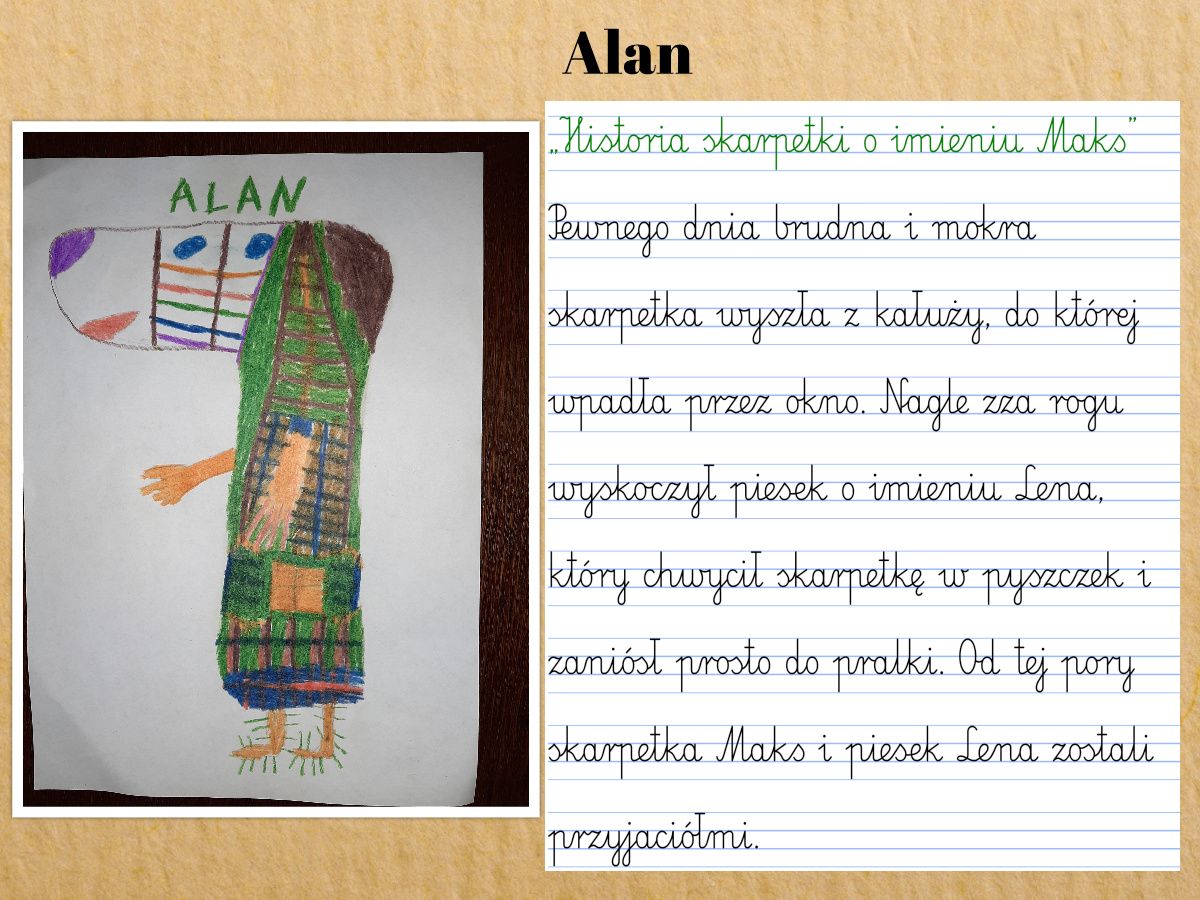 Alan
ALAN
„Historia skarpetki o imieniu Maks”
Pewnego dnia brudna i mokra
skarpetka wyszła z kałuży, do której
wpadła przez okno. Nagle zza rogu
wyskoczył piesek o imieniu Lena,
który chwycił skarpetkę w pyszczek i
zaniósł prosto do pralki. Od tej pory
skarpetka Maks i piesek Lena zostali
przyjaciółmi.